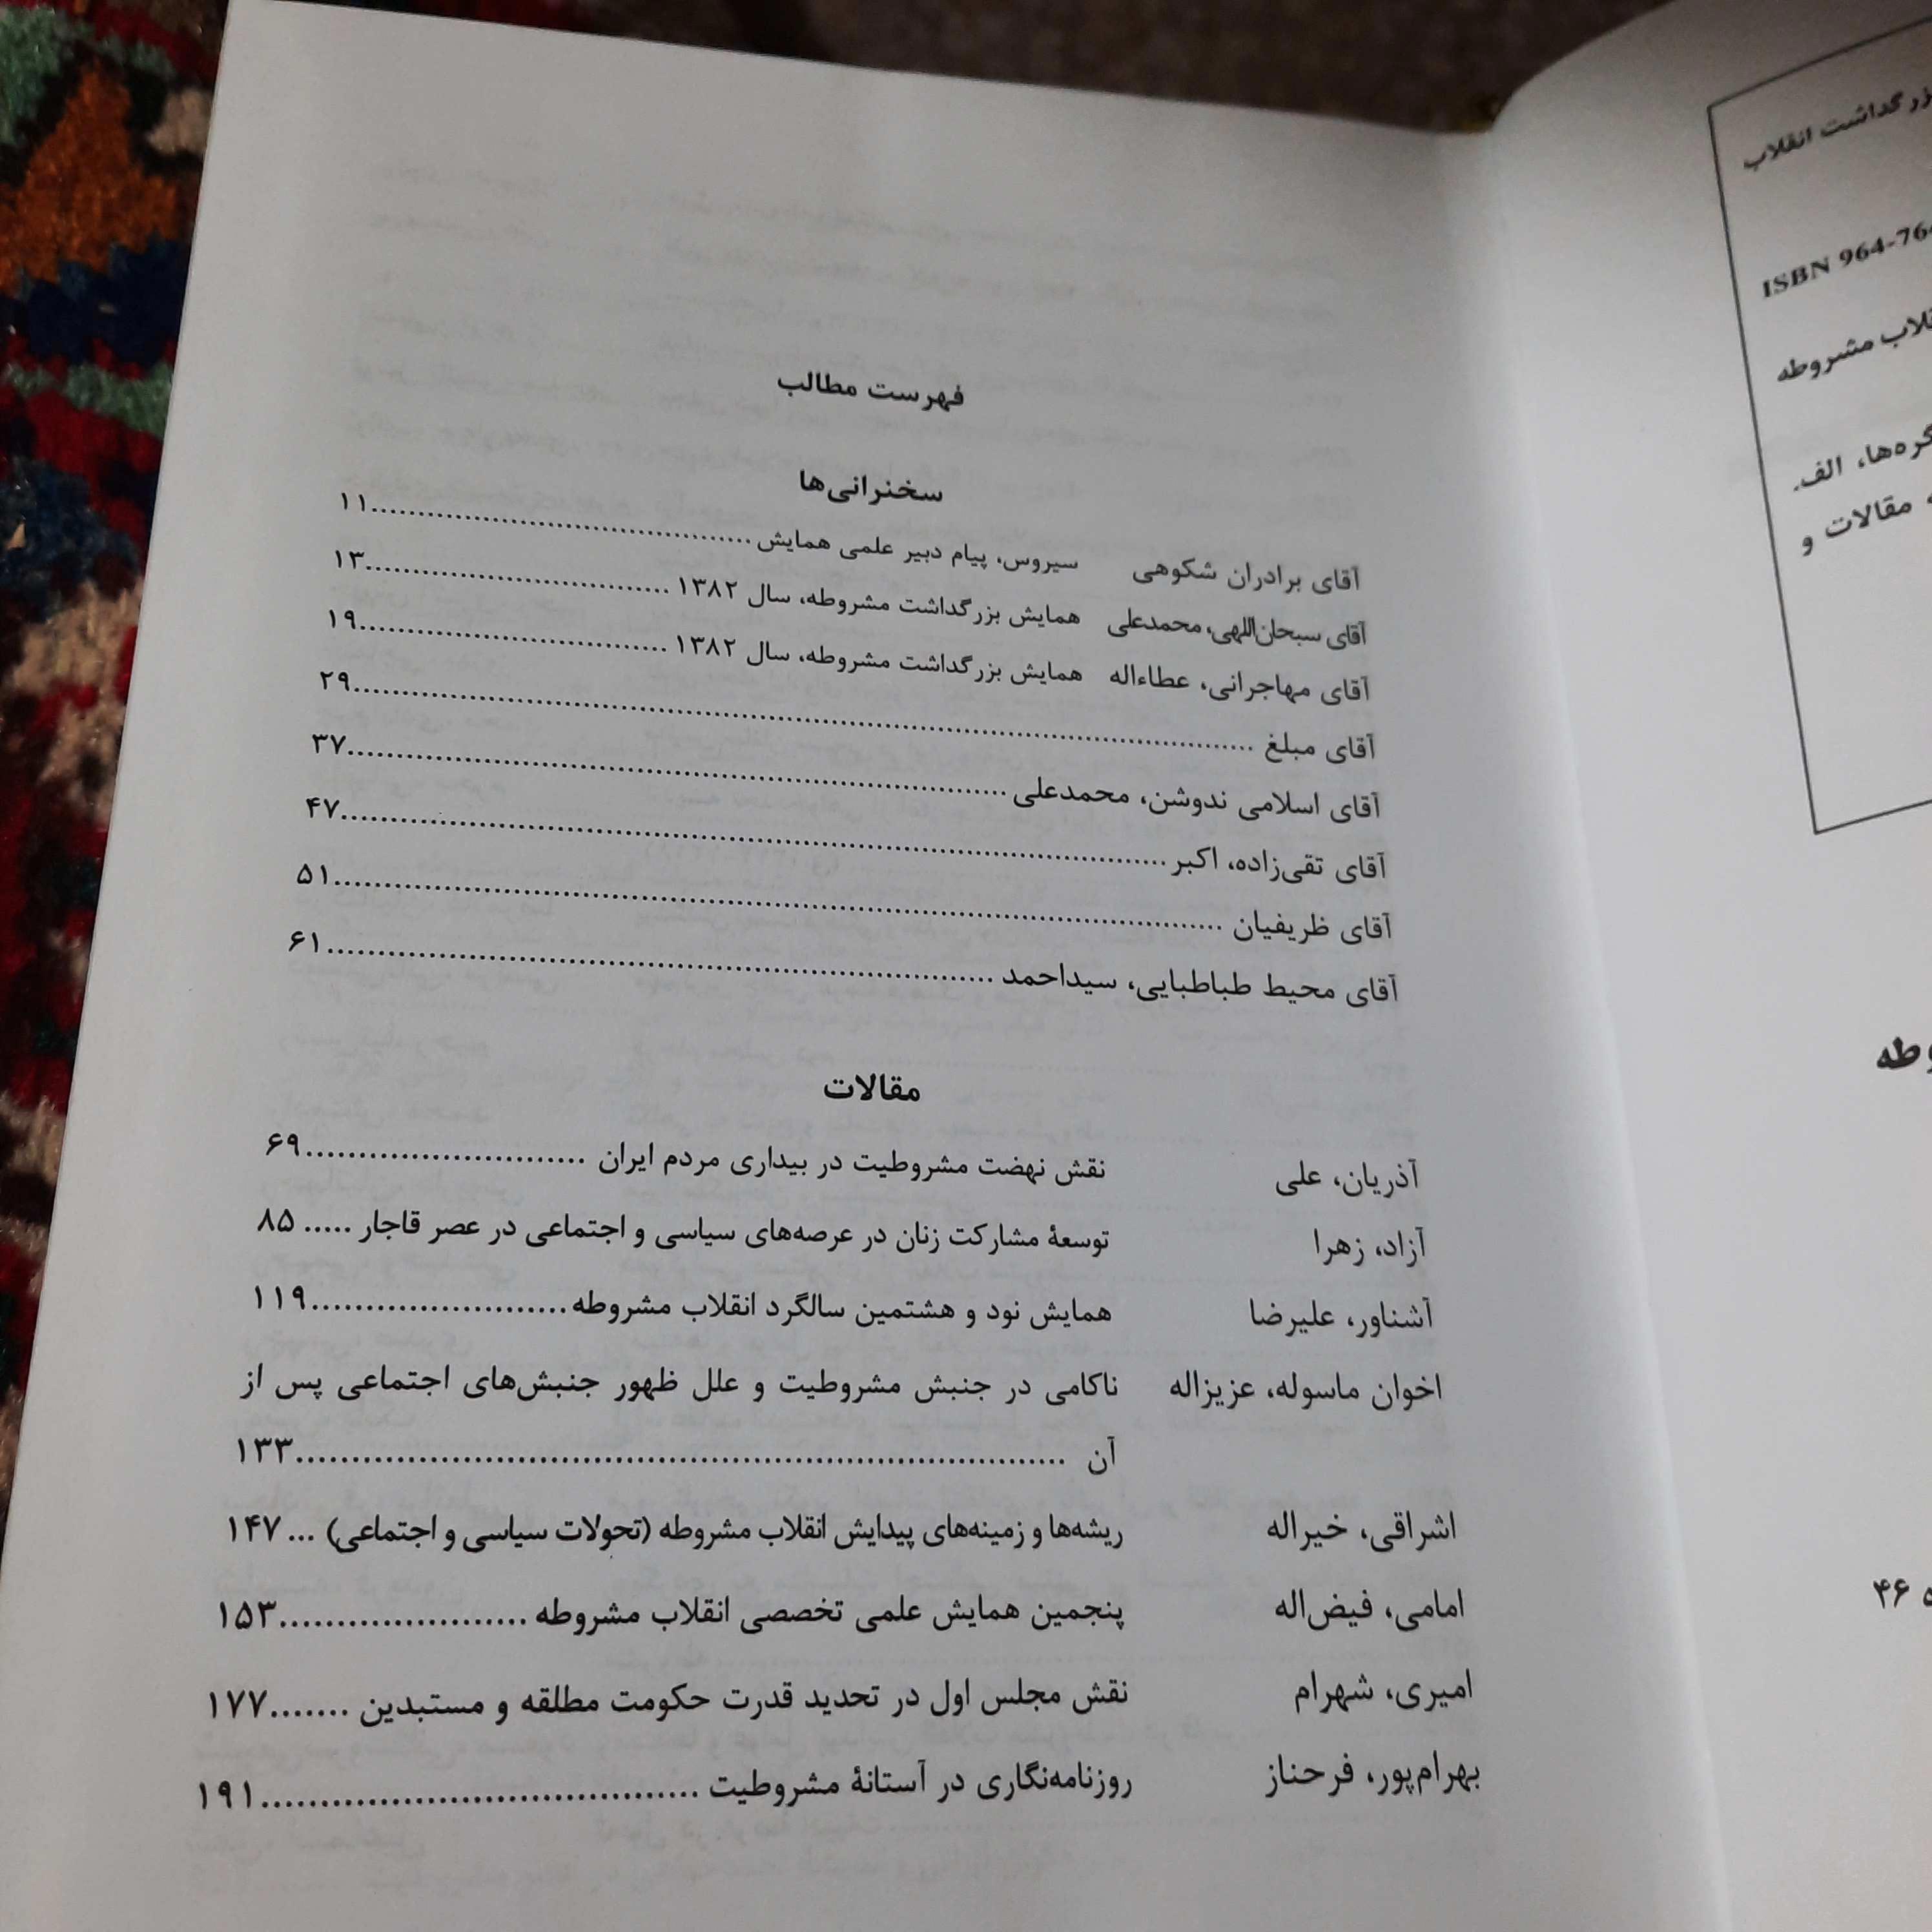 فهرست مطالب
سخنرانی‌ها
آقای برادران شکوهی سیروس، پیام دبیر علمی همایش ........................................ ۱۱
آقای سبحان‌اللهی، محمدعلی همایش بزرگداشت مشروطه، سال ۱۳۸۲ ................................ ۱۳
آقای مهاجرانی، عطاءاله همایش بزرگداشت مشروطه، سال ۱۳۸۲ ................................ ۱۹
آقای مبلغ ........................................ ۲۹
آقای اسلامی ندوشن، محمدعلی ........................................ ۳۷
آقای تقی‌زاده، اکبر ........................................ ۴۷
آقای ظریفیان ........................................ ۵۱
آقای محیط طباطبایی، سیداحمد ........................................ ۶۱
مقالات
آذریان، علی نقش نهضت مشروطیت در بیداری مردم ایران ........................... ۶۹
آزاد، زهرا توسعهٔ مشارکت زنان در عرصه‌های سیاسی و اجتماعی در عصر قاجار ..... ۸۵
آشناور، علیرضا همایش نود و هشتمین سالگرد انقلاب مشروطه ........................ ۱۱۹
اخوان ماسوله، عزیزاله ناکامی در جنبش مشروطیت و علل ظهور جنبش‌های اجتماعی پس از
آن ........................................ ۱۳۳
اشراقی، خیراله ریشه‌ها و زمینه‌های پیدایش انقلاب مشروطه (تحولات سیاسی و اجتماعی) ... ۱۴۷
امامی، فیض‌اله پنجمین همایش علمی تخصصی انقلاب مشروطه ....................... ۱۵۳
امیری، شهرام نقش مجلس اول در تحدید قدرت حکومت مطلقه و مستبدین ....... ۱۷۷
بهرام‌پور، فرحناز روزنامه‌نگاری در آستانهٔ مشروطیت ..................................... ۱۹۱
انقلاب
ISBN 964-76
مشروطه
الف.
مقالات و
۴۶